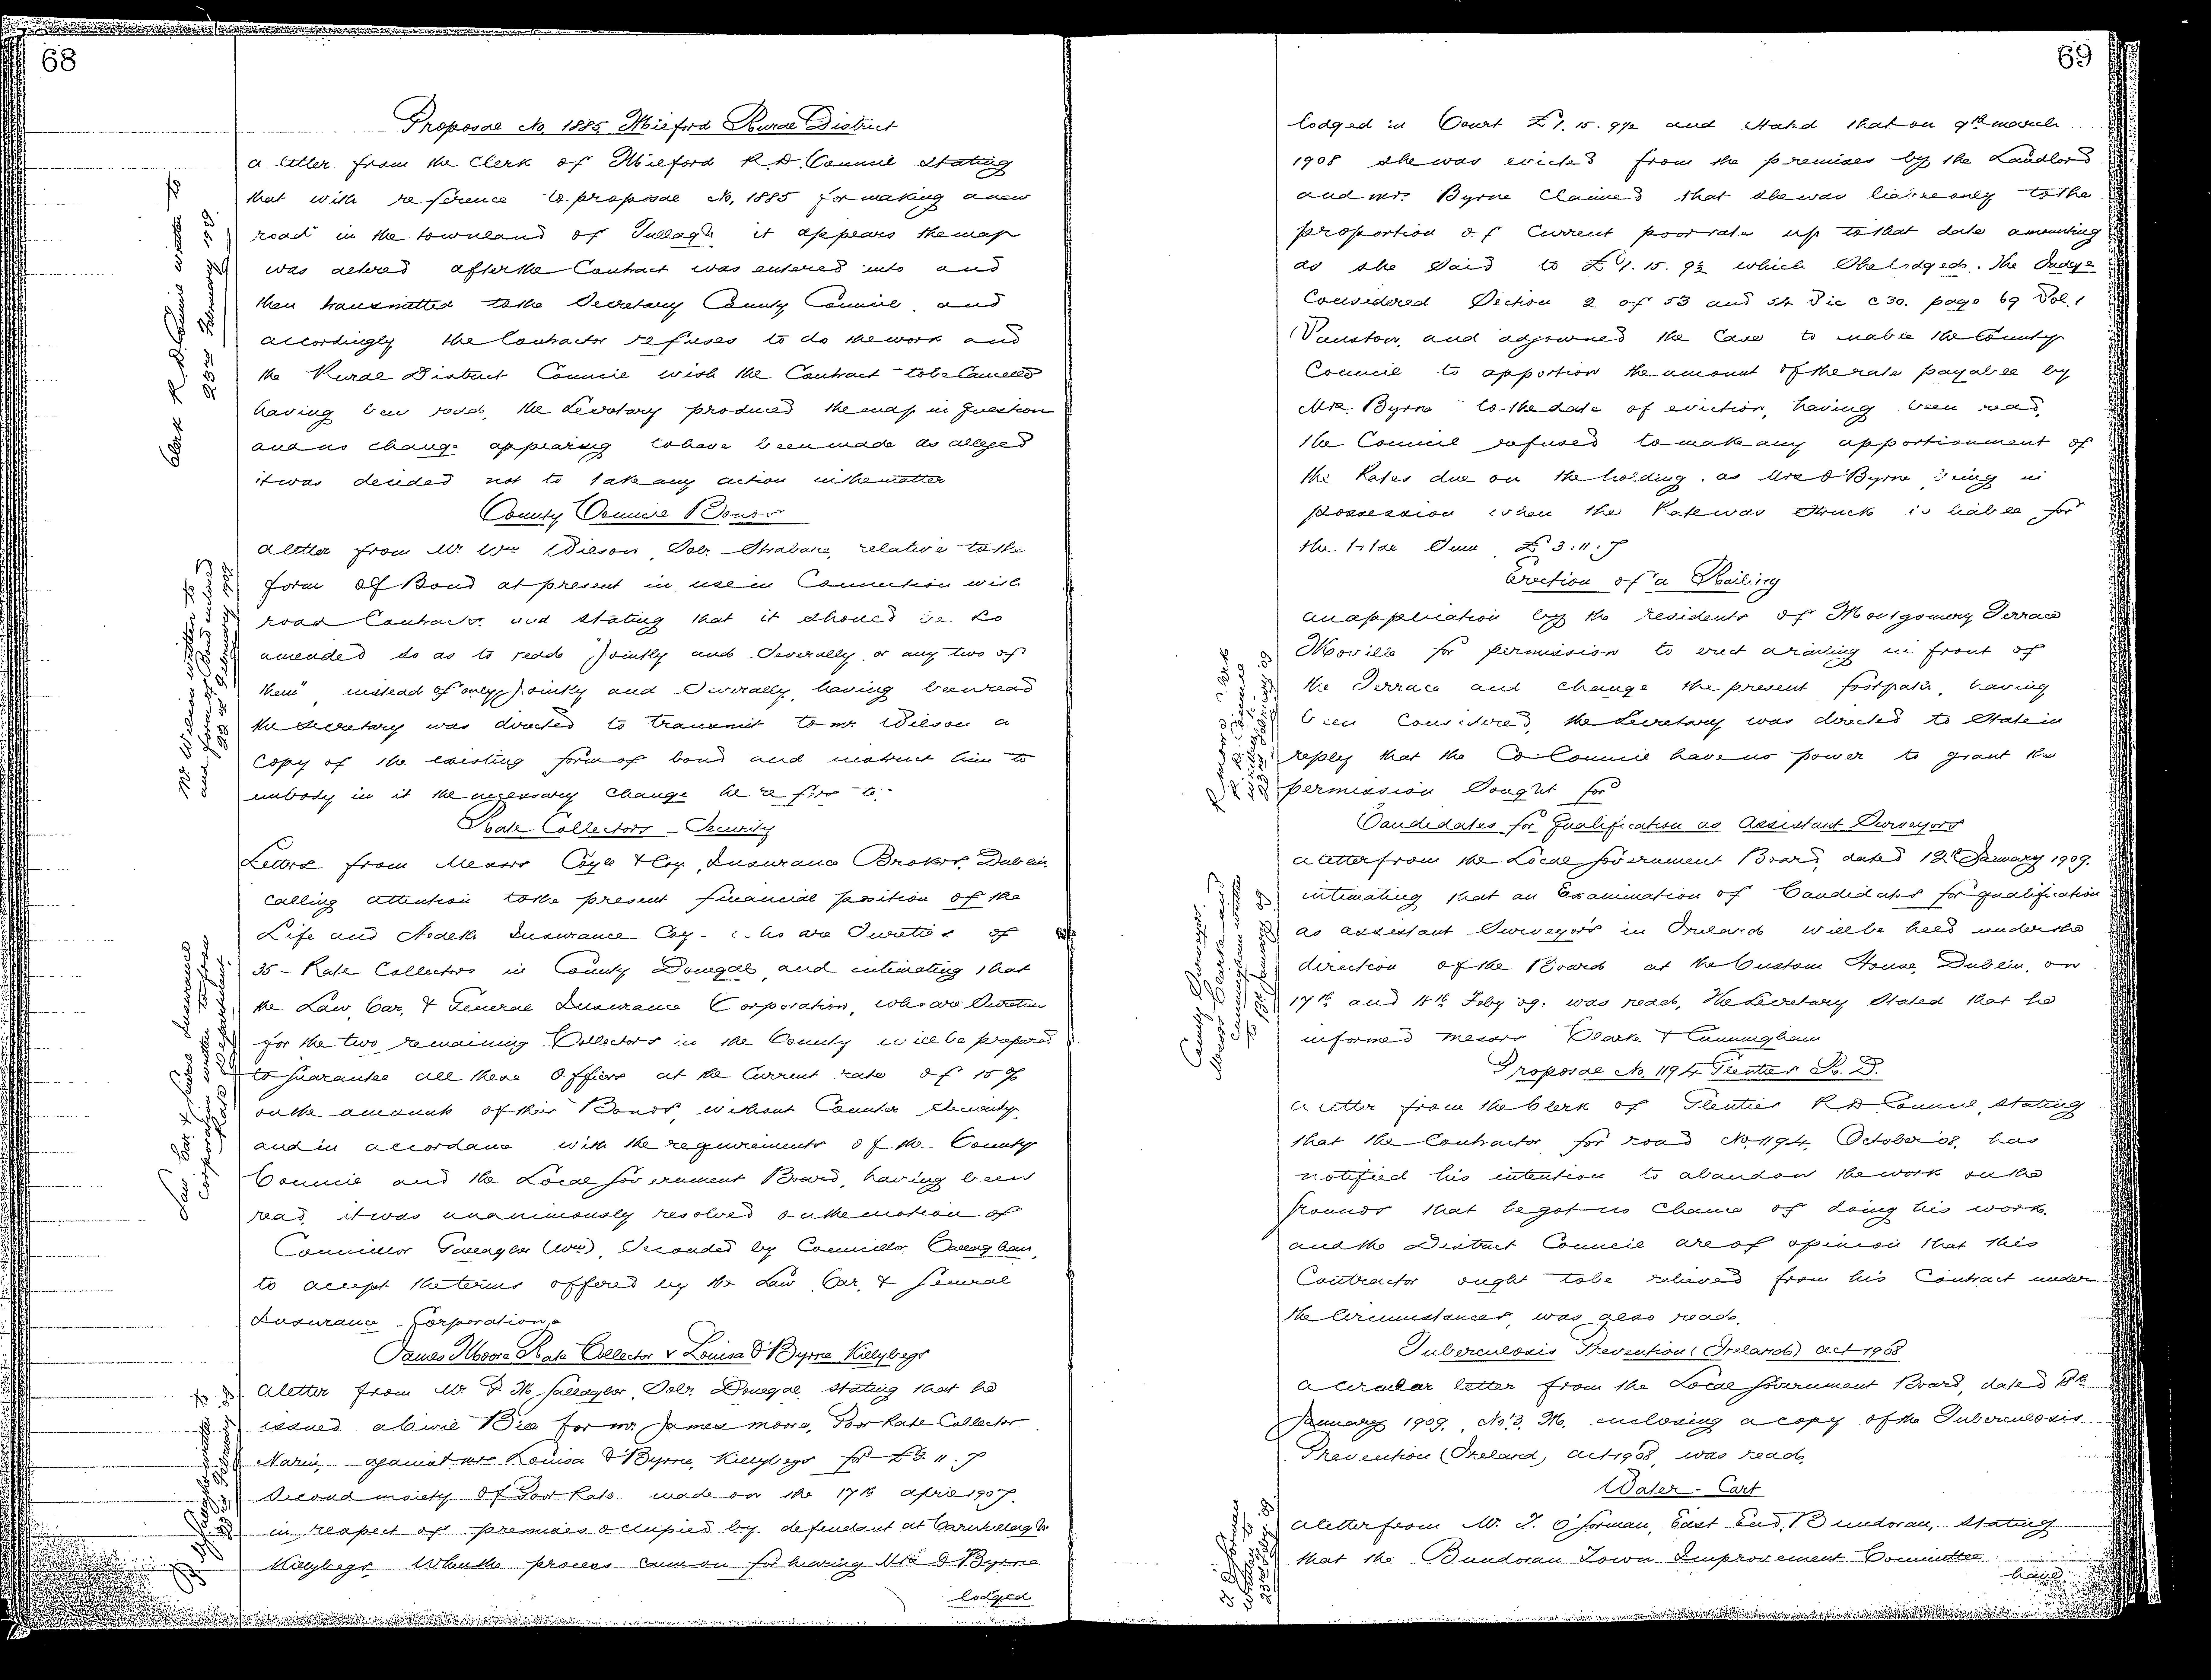 68
Proposal No. 1885 Milford Rural District
a letter from the Clerk of Milford R.D. Council stating
that with reference to proposal No. 1885 for making a new
road in the townland of Tullagh it appears the map
was altered after the Contract was entered into and
then transmitted to the Secretary County Council, and
accordingly the Contractor refuses to do the work and
the Rural District Council wish the Contract to be Cancelled
having been read, the Secretary produced the map in question
and no change appearing to have been made as alleged
it was decided not to take any action in the matter
Clerk R.D. Council written to
23rd February 1909
County Council Bonds
a letter from Mr Wm Wilson, Solr. Strabane, relative to the
form of Bond at present in use in Connection with
road Contracts and stating that it should be so
amended so as to read "Jointly and Severally, or any two of
them", instead of only Jointly and Severally, having been read
the Secretary was directed to transmit to Mr Wilson a
Copy of the existing form of bond and instruct him to
embody in it the necessary change he refers to.
Mr Wilson written to
and form of Bond enclosed
23rd February 1909
Rate Collectors - Security
Letters from Messrs Coyle & Coy, Insurance Brokers, Dublin,
calling attention to the present financial position of the
Life and Health Insurance Coy - who are Sureties of
35 - Rate Collectors in County Donegal, and intimating that
the Law, Car, & General Insurance Corporation, who are Sureties
for the two remaining Collectors in the County will be prepared
to guarantee all these Officers at the Current rate of 15%
on the amounts of their Bonds, without Counter Security.
and in accordance with the requirements of the County
Council and the Local Government Board, having been
read, it was unanimously resolved on the motion of
Councillor Gallagher (Wm), Seconded by Councillor Callaghan,
to accept the terms offered by the Law, Car, & General
Insurance Corporation.
Law, Car & General Insurance
Corporation written to
James Moore Rate Collector v Louisa O'Byrne Killybegs
a letter from Mr P. M. Gallagher, Solr. Donegal, stating that he
issued a Civil Bill for Mr. James Moore, Poor Rate Collector
Narin, against Mrs Louisa O'Byrne, Killybegs for £3. 11. 7
Second moiety of Poor Rate made on the 17th April 1907.
in respect of premises occupied by defendant at
Killybegs. When the process came on for hearing Mrs O'Byrne
lodged
69
lodged in Court £1. 15. 9½ and stated that on 9th March
1908 she was evicted from the premises by the Landlord
and Mrs. Byrne Claimed that she was liable only to the
proportion of Current poor rate up to that date amounting
as she said to £1. 15. 9½ which She lodged. The Judge
Considered Section 2 of 53 and 54 Vic c 30. page 69 Vol. 1
Vanston, and adjourned the Case to enable the County
Council to apportion the amount of the rate payable by
Mrs. Byrne to the date of eviction, having been read,
the Council refused to make any apportionment of
the Rates due on the holding, as Mrs O'Byrne being in
possession when the Rate was Struck is liable for
the total Sum £3: 11: 7
Erection of a Railing
an application by the residents of Montgomery Terrace
Moville for permission to erect a railing in front of
the Terrace and change the present footpath, having
been Considered, the Secretary was directed to State in
reply that the Co Council have no power to grant the
permission Sought for
Candidates for Qualification as Assistant Surveyors
a letter from the Local Government Board, dated 12th January 1909.
intimating that an Examination of Candidates for qualification
as assistant Surveyors in Ireland will be held under the
direction of the Board at the Custom House, Dublin, on
17th and 18th Feby 09, was read, the Secretary Stated that he
informed Messrs Clarke & Cunningham
County Surveyor
Messrs Clarke and
Cunningham written
to 15th January 09
Proposal No. 1194 Glenties R. D.
a letter from the Clerk of Glenties R D Council, stating
that the Contractor for road No. 1194, October 08, has
notified his intention to abandon the work on the
grounds that he got no Chance of doing his work.
and the District Council are of opinion that this
Contractor ought to be relieved from his Contract under
the Circumstances, was also read.
Tuberculosis Prevention (Ireland) Act 1908
a Circular letter from the Local Government Board, dated 18th
January 1909, No 3. M. enclosing a copy of the Tuberculosis
Prevention (Ireland) Act 1908, was read.
Water - Cart
a letter from Mr. T. O'Gorman, East End, Bundoran, stating
that the Bundoran Town Improvement Committee
have